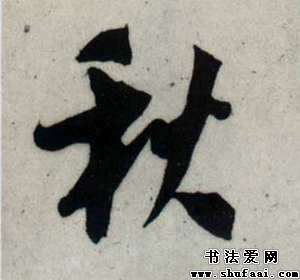 秋
书法爱网
www.shufaai.com